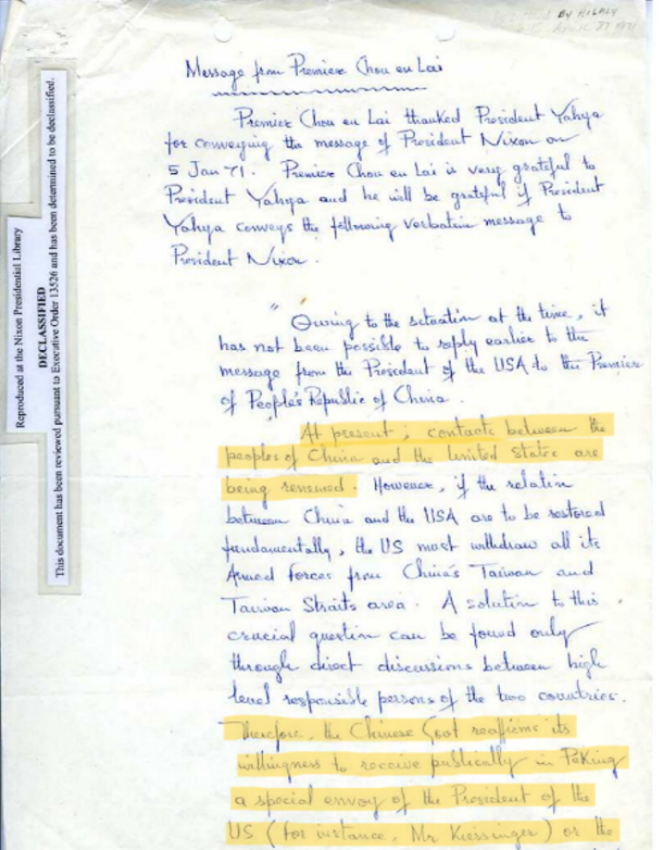 BY HILALY
April 27 1971
Message from Premier Chou en Lai
Premier Chou en Lai thanked President Yahya
for conveying the message of President Nixon on
5 Jan 71. Premier Chou en Lai is very grateful to
President Yahya and he will be grateful if President
Yahya conveys the following verbatim message to
President Nixon.
" Owing to the situation at the time, it
has not been possible to reply earlier to the
message from the President of the USA to the Premier
of People's Republic of China.
At present, contacts between the
peoples of China and the United States are
being renewed. However, if the relation
between China and the USA are to be restored
fundamentally, the US must withdraw all its
Armed forces from China's Taiwan and
Taiwan Straits area. A solution to this
crucial question can be found only
through direct discussions between high
level responsible persons of the two countries.
Therefore, the Chinese Govt reaffirms its
willingness to receive publically in Peking
a special envoy of the President of the
US (for instance, Mr Kissinger) or the
Reproduced at the Nixon Presidential Library
DECLASSIFIED
This document has been reviewed pursuant to Executive Order 13526 and has been determined to be declassified.